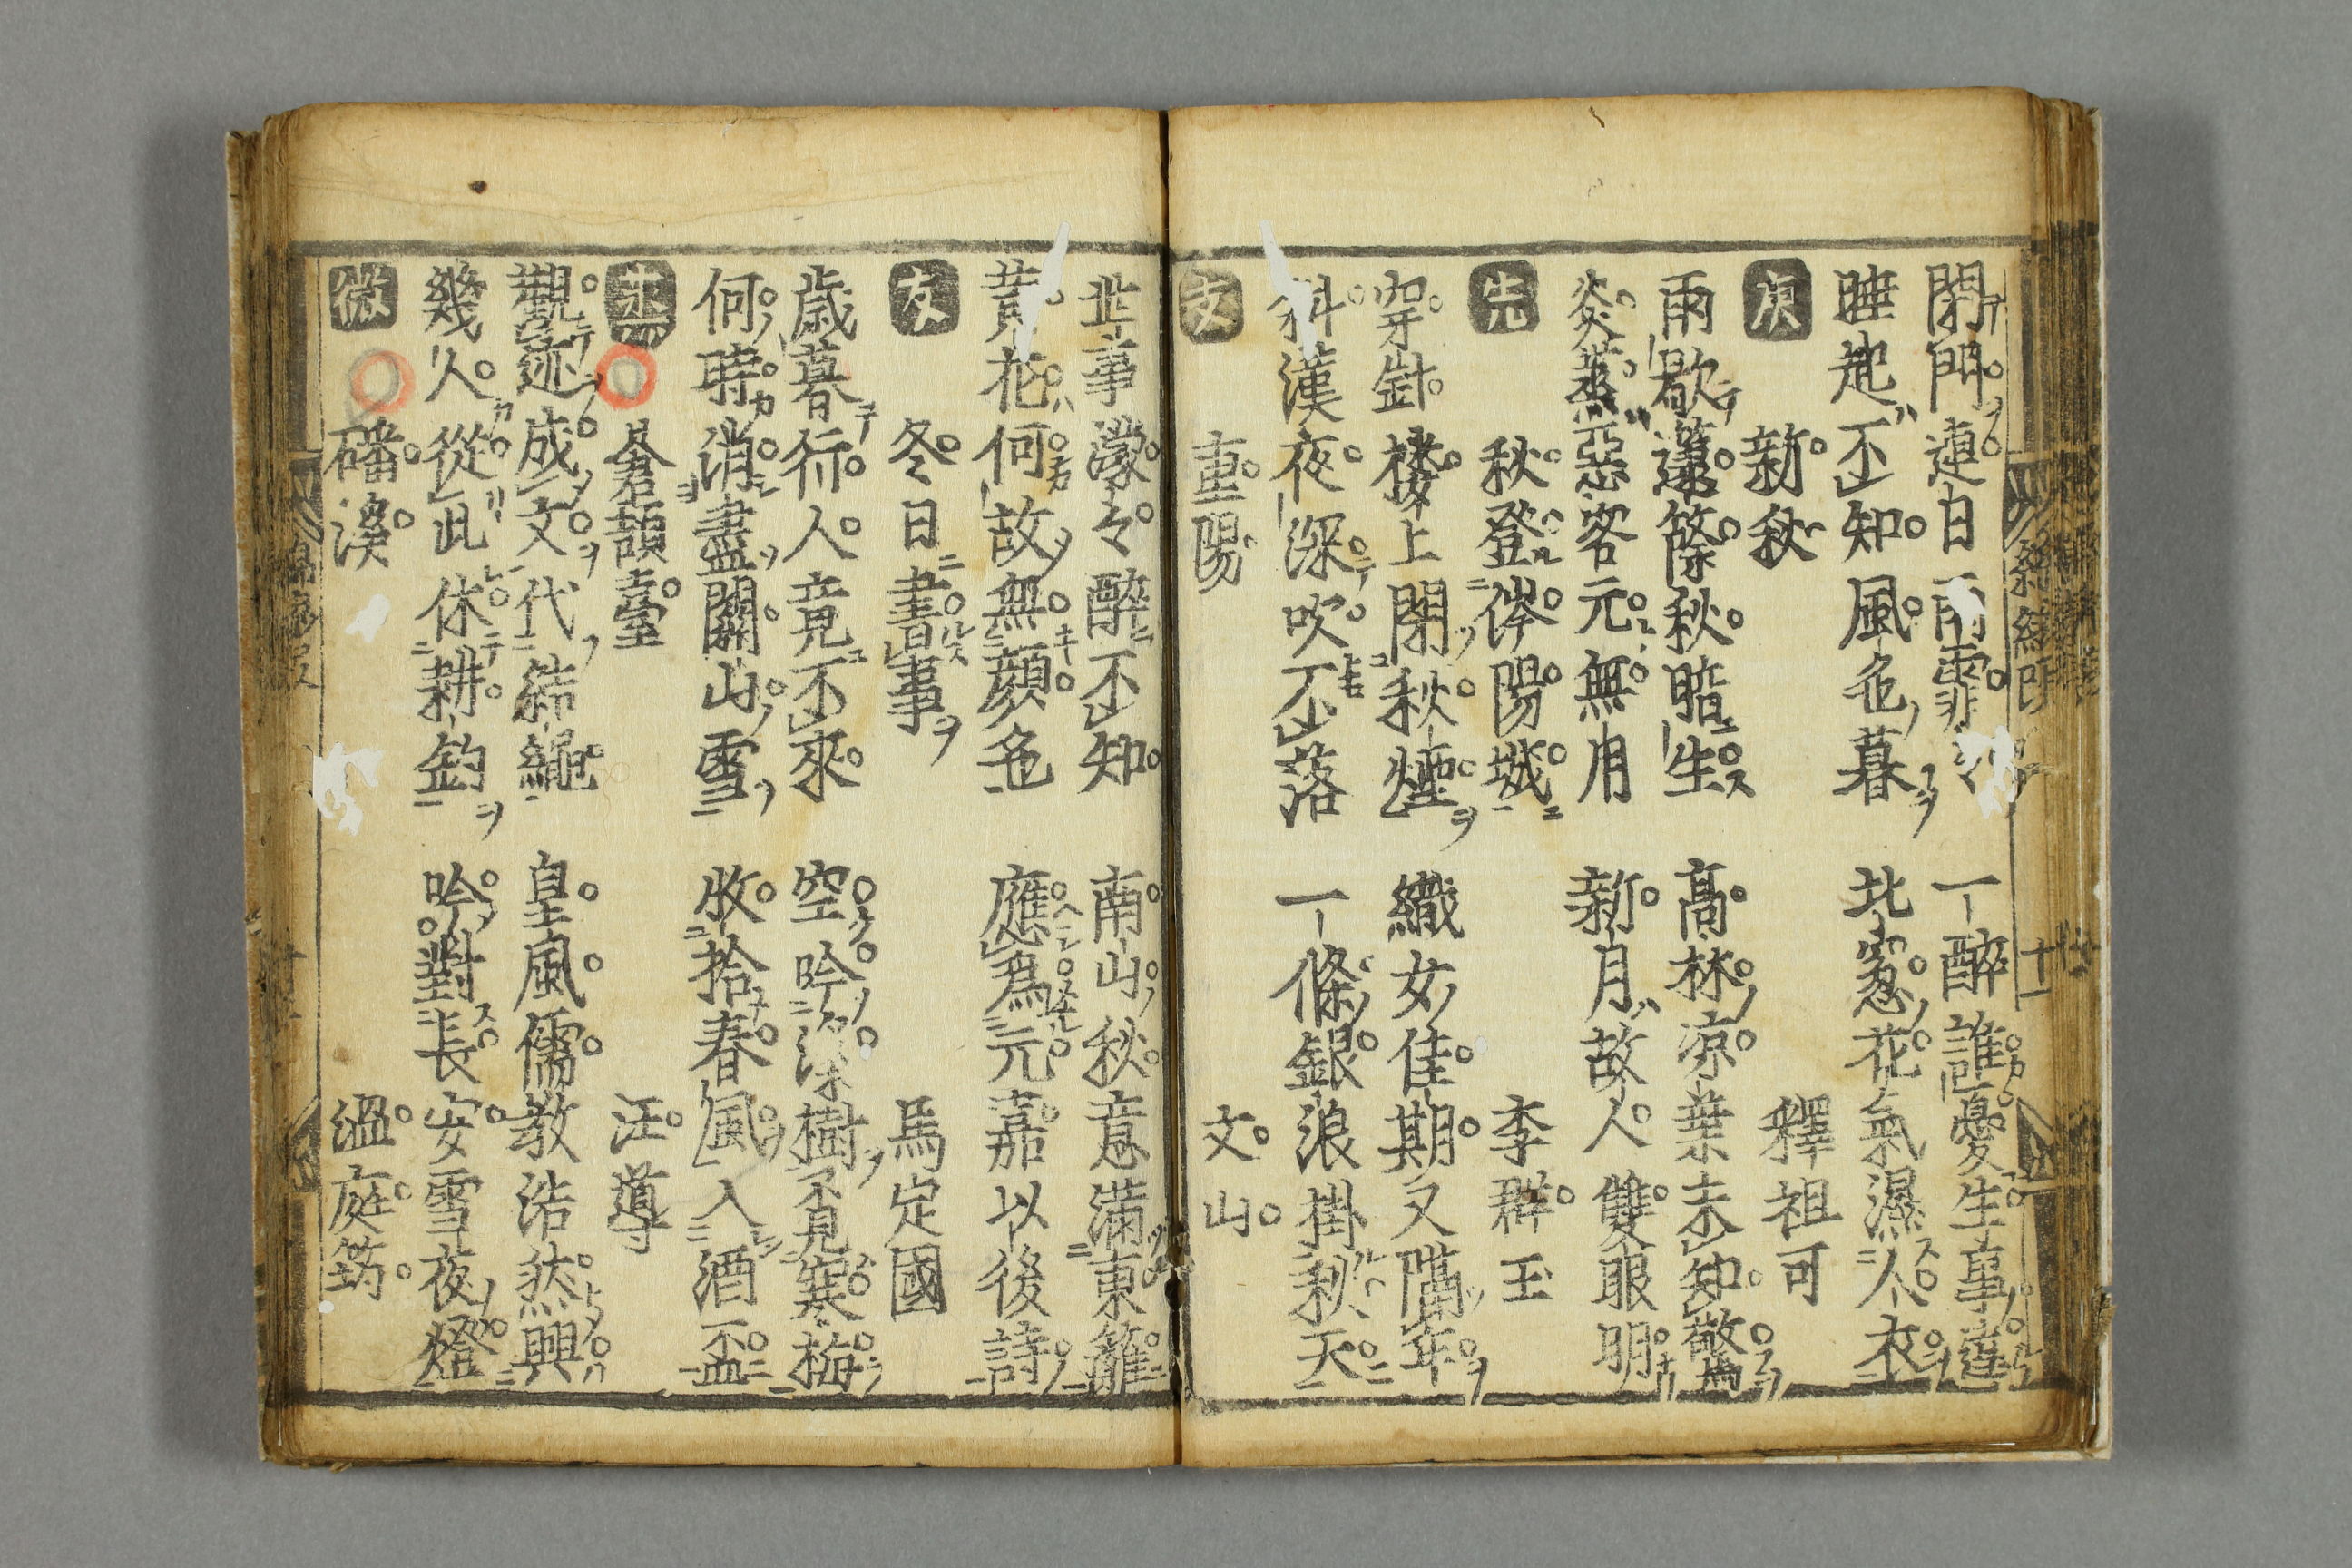 閑門連日雨霏々 一醉誰憂生事違
睡起不知風色暮 北窓花氣濕人衣
庚 新秋 釋祖可
雨歇籧篨秋暗生 高林凉葉未知驚
炎蒸惡客元無用 新月故人雙眼明
先 秋登俗陽城 李群玉
穿針楼上閑秋煙 織女佳期又隔年
斜漢夜深吹不落 一條銀浪掛秋天
支 重陽 文山
世事濛々醉不知 南山秋意滿東籬
黄花何故無顔色 應爲元嘉以後詩
灰 冬日書事 馬定國
歳暮行人竟不來 空吟深樹覓寒梅
何時消盡關山雪 收拾春風入酒盃
蒸 倉頡臺 汪導
觀迹成文代結繩 皇風儒教浩然興
幾人從此休耕釣 吟對長安雪夜燈
微 磻溪 溫庭筠